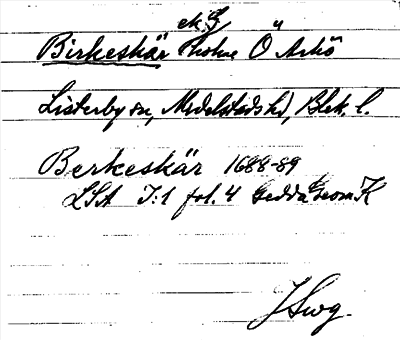 ek. G
Birkeskär holme Ö Arkö
Listerby sn, Medelstads hd, Blek. l.
Berkeskär 1688-89
LSA I:1 fol. 4 Gedda Geom. K
J Swg.